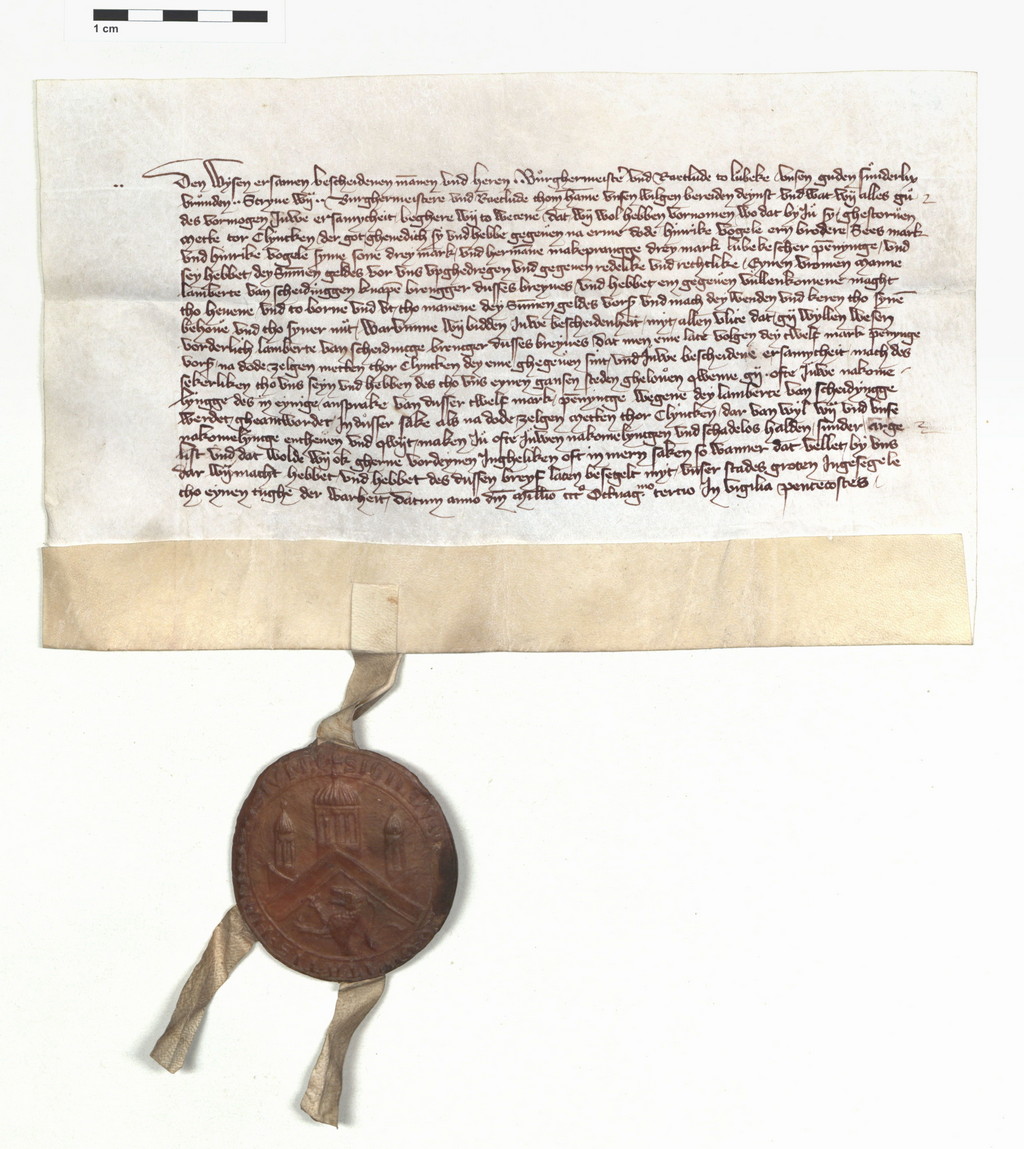 1 cm
Den Wysen ersamen bescheidenen mānen und heren ·· Burghermeiste͛ und Raetlude to lubeke unsen guden sunderlix
vrunden ·· Scryue wy ·· Burghermeistere und Raetlude thom hāme unsen wilgen bereiden deynst und wat wy alles gu
des vormogen Juwe ersamycheit beghere wy to wetene dat wy wol hebben vornomen wo dat by Ju sy ghestoruen
Metke tor Clyncken der got ghenedich sy und hebbe gegeuen na erme dode hinrike vogele orm brodere Sees mark
und hinrike vogele syme sone drey mark und hermāne makeprangge drey mark lubekescher pēnynge und
sey hebbet dey Sūmen geldes vor uns upghedregen und gegeuen redelike und rechtlike Eynen vromen Manne
lamberte van scheidinggen knape brengger dusses breyues und hebbet em gegeuen vullenkomene maght
tho heuene und to borne und ut tho manene dey Sūmen geldes vors und mach dey wenden und keren tho syne
behoue und tho syner nut Warumme wy bidden Juwe bescheidenheit myt allen vlite dat gy wyllen wesen
vorderlich lamberte van scheidingge brencger dusses breyues dat men eme late volgen dey twelf mark pēninge
vors na dode zelgen metken thor Clyncken dey eme ghegeuen sint und Juwe bescheidene ersamycheit mach des
sekerliken tho uns seyn und hebben des tho uns eynen gansen steden ghelouen qweme gy ofte Juwe nakome
lyngge des in eynige ansprake van dusser twelf mark pēnynge wegene dey lamberte van scheidyngge
werdet gheantwordet In dusser sake als na dode zelgen Metken thor Clyncken dar van wyl wy und unse
nakomelynge entheuen und qwyt maken Ju ofte Juwen nakomelyngen und schadelos halden sunder arge
list und dat wolde wy ok gherne vordeynen Ingheliken oft in mern saken so wanner dat vellet by uns
dar wy macht hebbet und hebbet des dussen breyf laten besegelt myt unser stades groten Ingesegele
tho eynen tughe der warheit Datum anno dm̄ Millīo ccc° Octuag^mo tercio In vigilia pentecostes